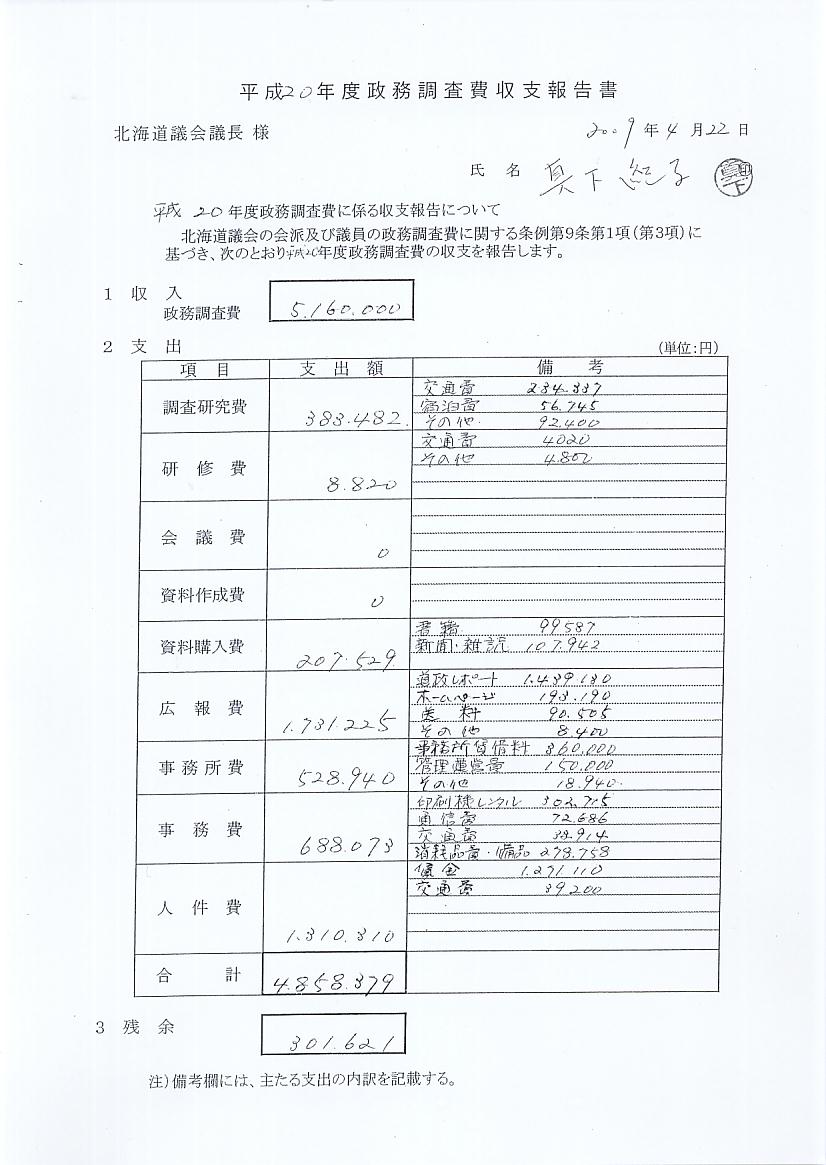 平成20年度政務調査費収支報告書
北海道議会議長 様
2009年4月22日
氏 名 真下紀子
真下
平成20年度政務調査費に係る収支報告について
北海道議会の会派及び議員の政務調査費に関する条例第9条第1項(第3項)に
基づき、次のとおり平成20年度政務調査費の収支を報告します。
1 収 入
政務調査費 5.160.000
2 支 出 (単位:円)
項 目 支 出 額 備 考
調査研究費 383.482. 交通費 234.337
宿泊費 56.745
その他 92.400
研 修 費 8.820 交通費 4020
その他 4.800
会 議 費 0
資料作成費 0
資料購入費 207.529 書籍 99587
新聞・雑誌 107.942
広 報 費 1.731.225 道政レポート 1.439.130
ホームページ 193.190
送 料 90.505
その他 8.400
事務所費 528.940 事務所賃借料 360.000
管理運営費 150.000
その他 18.940
事 務 費 688.073 印刷機レンタル 302.715
通信費 72.686
交通費 33.914
消耗品費・備品 278.758
人 件 費 1.310.310 賃金 1.271.110
交通費 39.200
合 計 4.858.379
3 残 余 301.621
注)備考欄には、主たる支出の内訳を記載する。